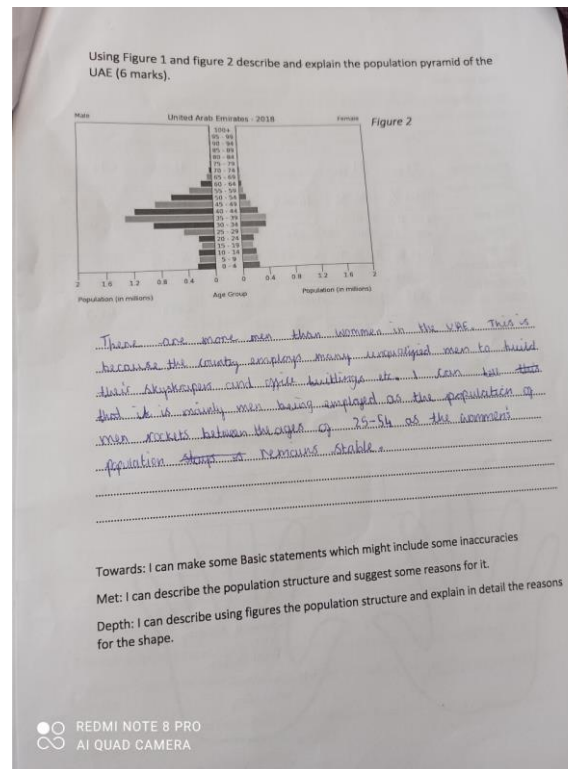 Using Figure 1 and figure 2 describe and explain the population pyramid of the
UAE (6 marks).
Male
United Arab Emirates - 2018
Female
Figure 2
100+
95 - 99
90 - 94
85 - 89
80 - 84
75 - 79
70 - 74
65 - 69
60 - 64
55 - 59
50 - 54
45 - 49
40 - 44
35 - 39
30 - 34
25 - 29
20 - 24
15 - 19
10 - 14
5 - 9
0 - 4
2 1.6 1.2 0.8 0.4 0 0 0.4 0.8 1.2 1.6 2
Population (in millions)
Age Group
Population (in millions)
There are more men than wommen in the UAE. This is
because the country employs many unqualified men to build
their skyskrapers and office buildings etc. I can
that it is mainly men being employed as the population of
men rockets between the ages of 25-54 as the wommens
population remains stable.
Towards: I can make some Basic statements which might include some inaccuracies
Met: I can describe the population structure and suggest some reasons for it.
Depth: I can describe using figures the population structure and explain in detail the reasons
for the shape.
REDMI NOTE 8 PRO
AI QUAD CAMERA